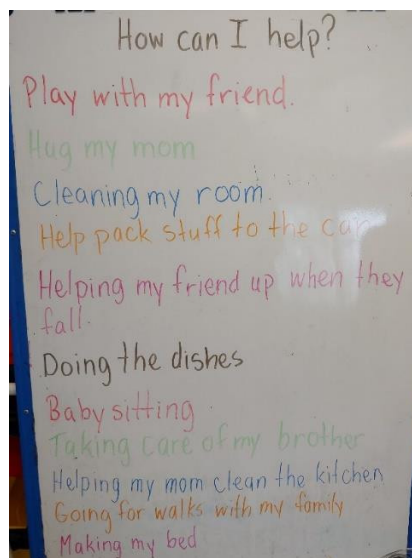 How can I help?
Play with my friend.
Hug my mom
Cleaning my room.
Help pack stuff to the car
Helping my friend up when they
fall.
Doing the dishes
Babysitting
Taking care of my brother
Helping my mom clean the kitchen
Going for walks with my family
Making my bed